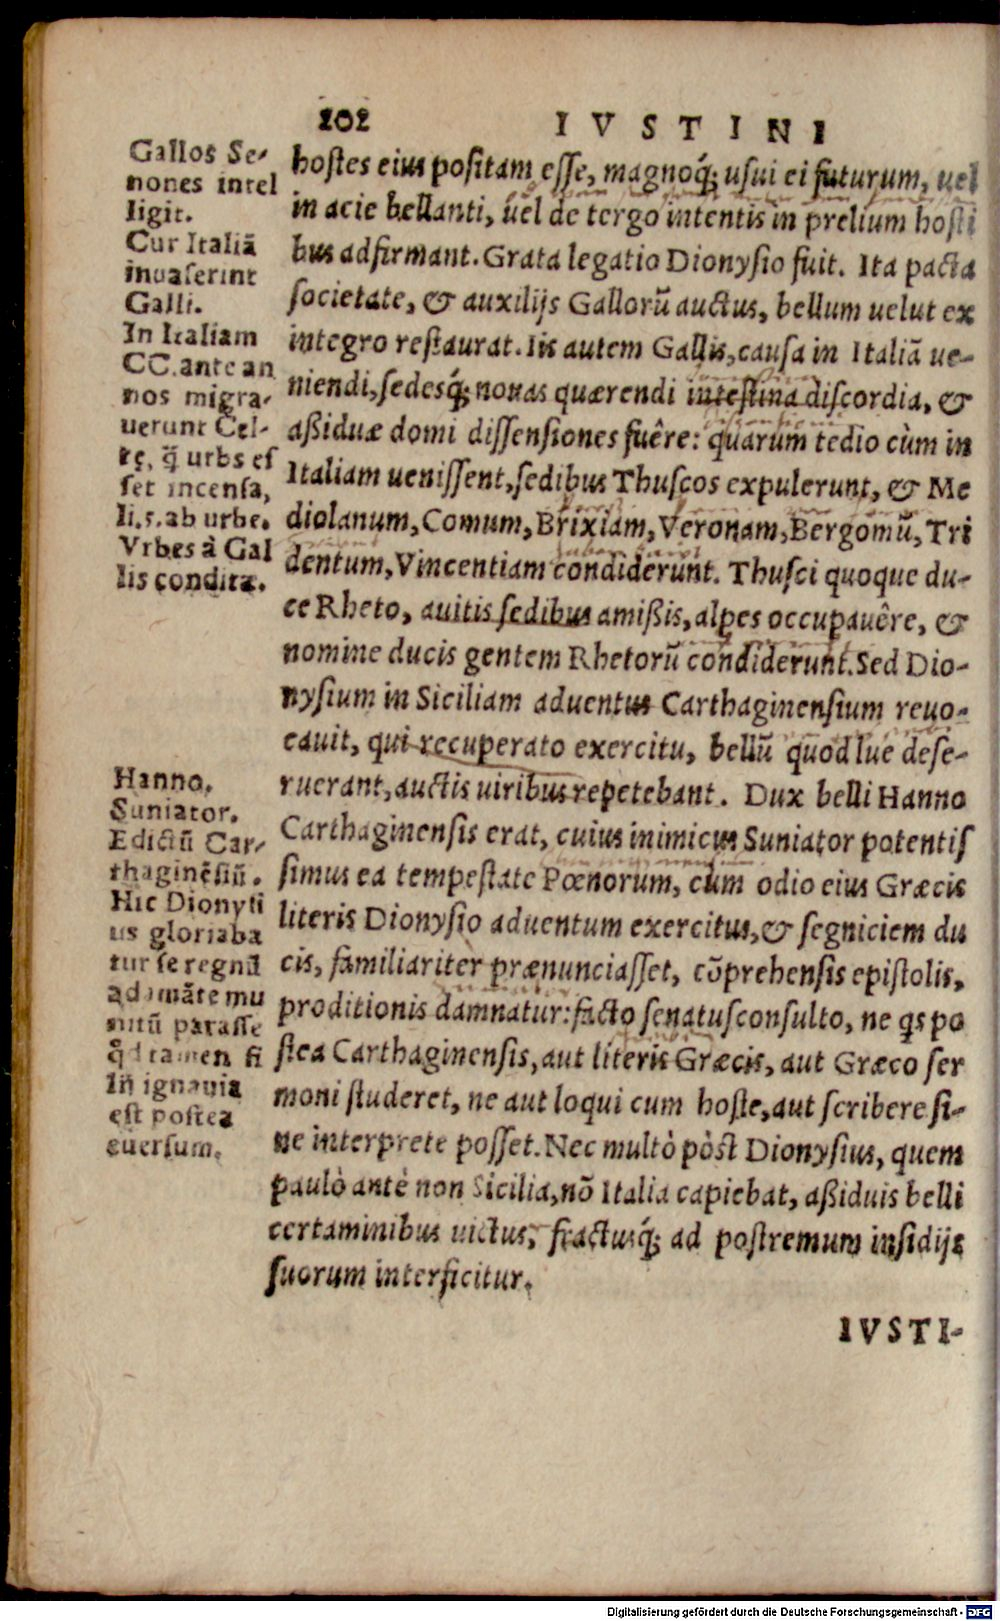 102 IVSTINI
Gallos Se-
nones intel
ligit.
Cur Italiã
inuaserint
Galli.
In Italiam
CC. ante an
nos migra-
uerunt Cel-
tę, q̃ urbs es
set incensa,
Vrbes à Gal
lis condita.
hostes eius positam esse, magnoq́; usui ei futurum, uel
in acie bellanti, uel de tergo intentis in prelium hosti
bus adfirmant. Grata legatio Dionysio fuit. Ita pacta
societate, & auxilijs Gallorũ auctus, bellum uelut ex
integro restaurat. Iis autem Gallis, causa in Italiã ue-
niendi, sedesq́; nouas quærendi intestina discordia, &
aßiduæ domi dissensiones fuêre: quarum tedio cùm in
Italiam uenissent, sedibus Thuscos expulerunt, & Me
diolanum, Comum, Brixiam, Veronam, Bergomũ, Tri
dentum, Vincentiam condiderunt. Thusci quoque du-
ce Rheto, auitis sedibus amißis, alpes occupauêre, &
nomine ducis gentem Rhetorũ condiderunt. Sed Dio-
nysium in Siciliam aduentus Carthaginensium reuo-
cauit, qui recuperato exercitu, bellũ quod lue dese-
ruerant, auctis uiribus repetebant. Dux belli Hanno
Carthaginensis erat, cuius inimicus Suniator potentis
simus ea tempestate Pœnorum, cum odio eius Græcis
literis Dionysio aduentum exercitus, & segniciem du
cis, familiariter prænunciasset, cõprehensis epistolis,
proditionis damnatur: facto senatusconsulto, ne qs po
stea Carthaginensis, aut literis Græcis, aut Græco ser
moni studeret, ne aut loqui cum hoste, aut scribere si-
ne interprete posset. Nec multò pòst Dionysius, quem
paulò antè non Sicilia, nõ Italia capiebat, aßiduis belli
certaminibus uictus, fractusq́; ad postremum insidijs
suorum interficitur.
Hanno.
Suniator.
Edictũ Car-
thaginẽsiũ.
Hic Dionysi
us gloriaba
tur se regnũ
adamãte mu
nitũ parasse
qd tamen fi
lij ignauia
est postea
euersum.
IVSTI-
Digitalisierung gefördert durch die Deutsche Forschungsgemeinschaft - DFG